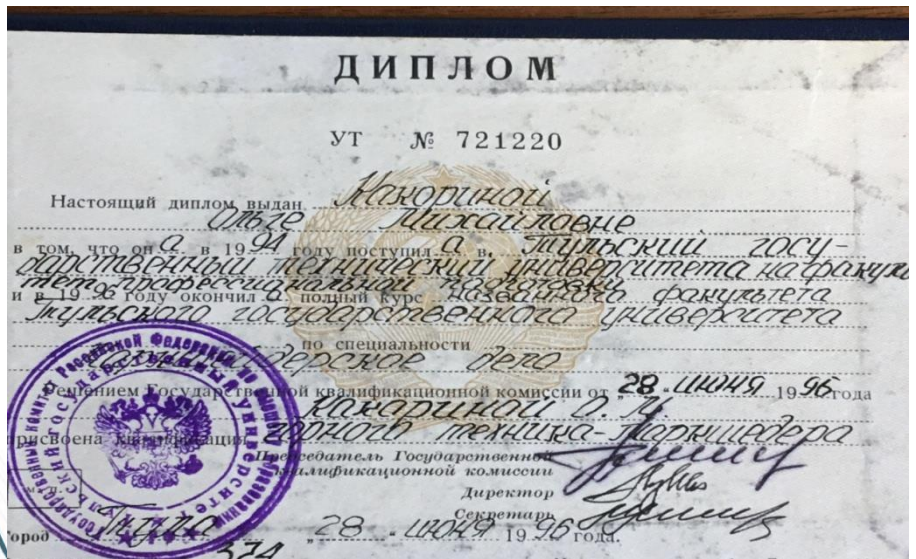 ДИПЛОМ
УТ № 721220
Настоящий диплом выдан Макариной
Ольге Михайловне
в том, что он а в 1994 году поступил а в Тульский госу-
дарственный технический университета на факуль
тет профессиональной подготовки
и в 1996 году окончил а полный курс названного факультета
Тульского государственного университета
по специальности
Маркшейдерское дело
Решением Государственной квалификационной комиссии от 28 июня 1996 года
Макариной О. М.
присвоена квалификация горного техника-маркшейдера
Председатель Государственной
квалификационной комиссии
Директор
Секретарь
город Тула 28 июня 1996 года.
374